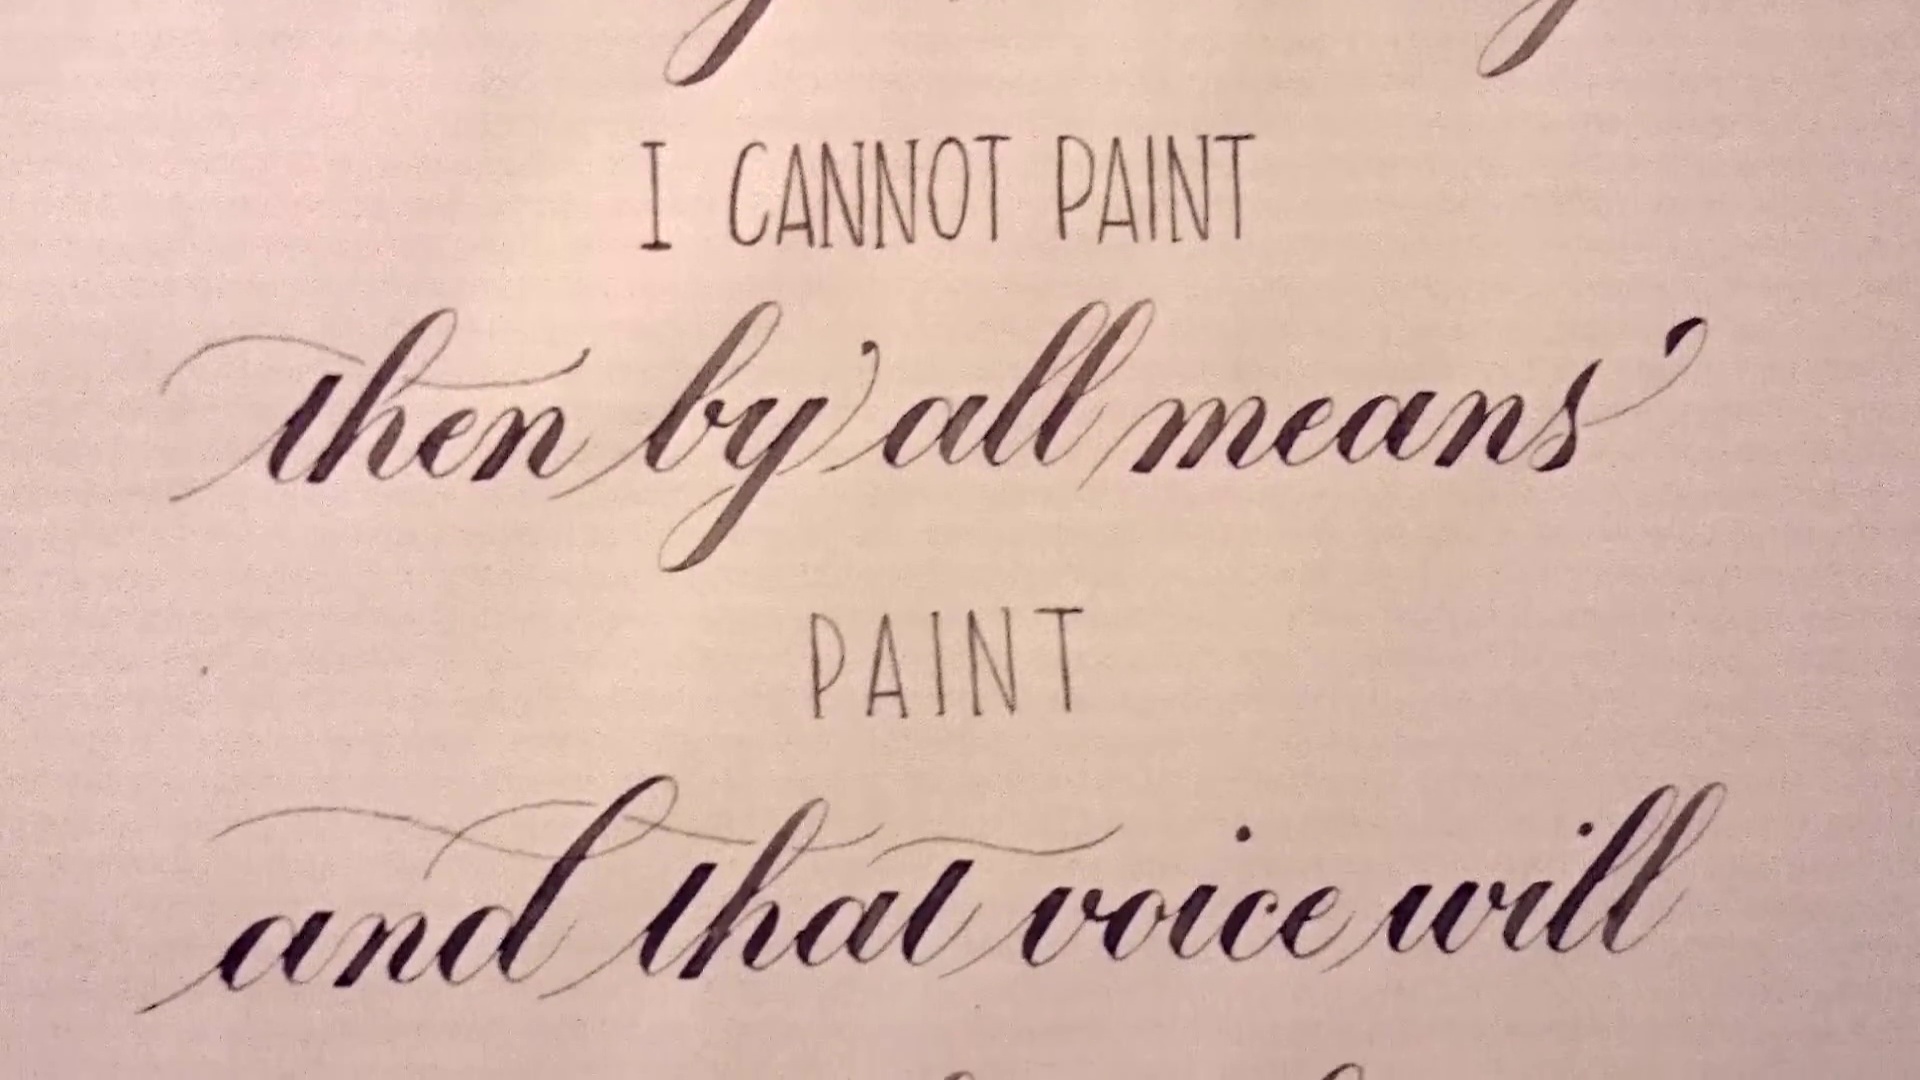 I CANNOT PAINT
then by all means
PAINT
and that voice will